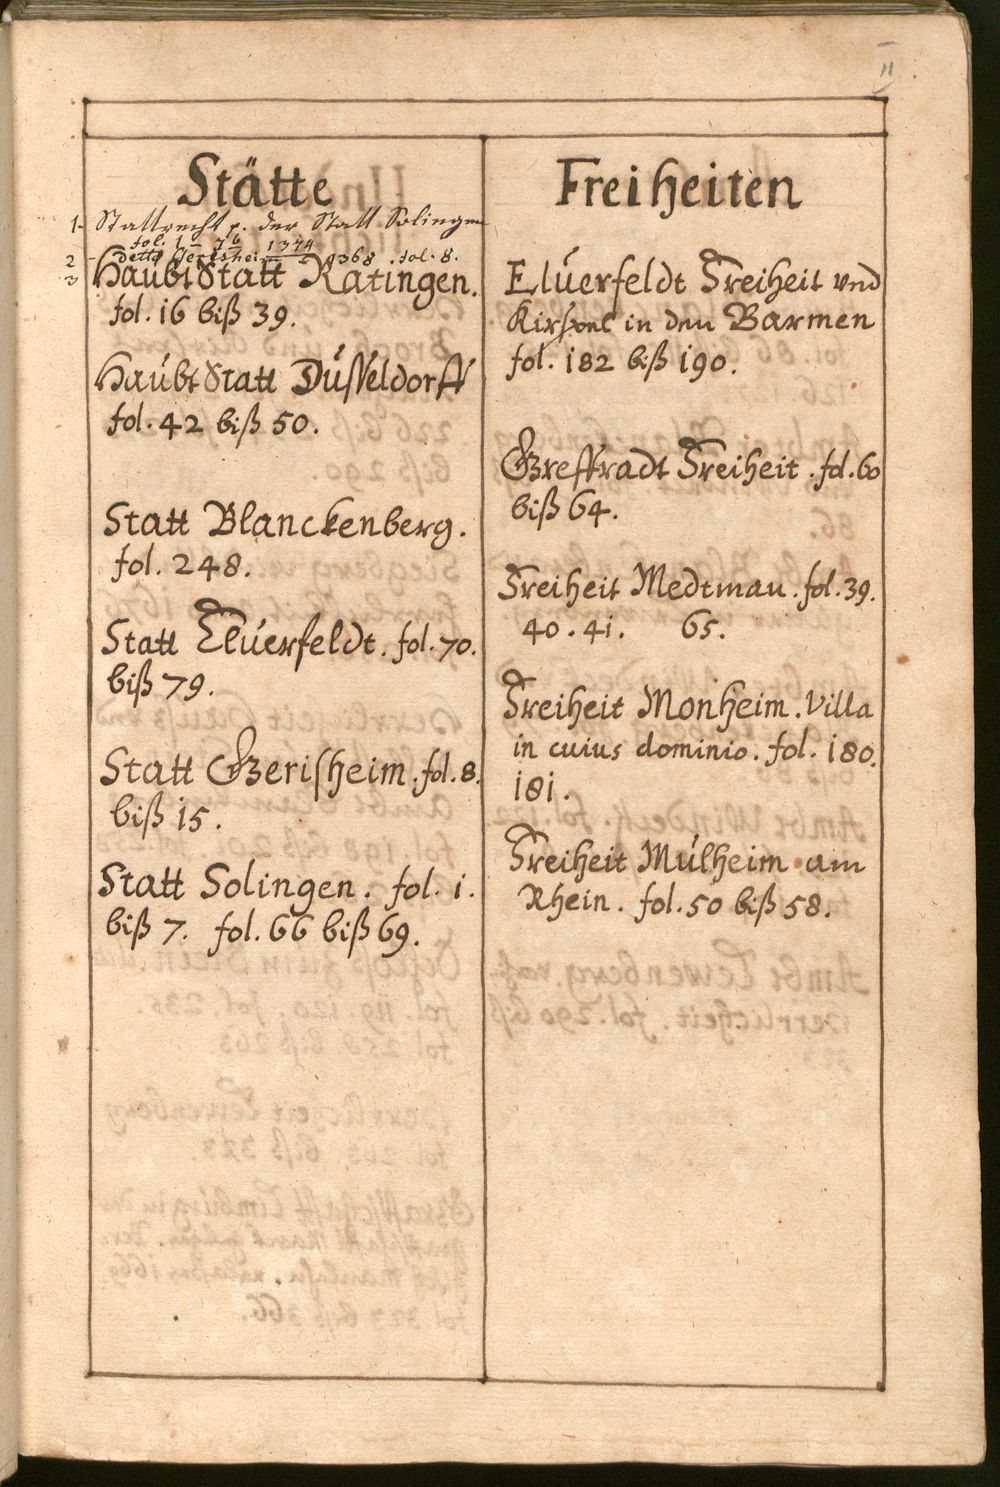 II
Stätte
1. Stattrecht p. der Statt Solingen
fol. 1 1374
2 detto Gerisheim 1368 . fol. 8.
3 Haubt Statt Ratingen.
fol. 16 biß 39.
Haubt Statt Düsseldorff
fol. 42 biß 50.
Statt Blanckenberg.
fol. 248.
Statt Eluerfeldt. fol. 70.
biß 79.
Statt Gerisheim. fol. 8.
biß 15.
Statt Solingen. fol. 1.
biß 7. fol. 66 biß 69.
Freiheiten
Eluerfeldt Freiheit vnd
Kirspel in den Barmen
fol. 182 biß 190.
Greffradt Freiheit. fol. 60
biß 64.
Freiheit Medtman. fol. 39.
40. 41. 65.
Freiheit Monheim. Villa
in cuius dominio. fol. 180.
181.
Freiheit Mülheim am
Rhein. fol. 50 biß 58.